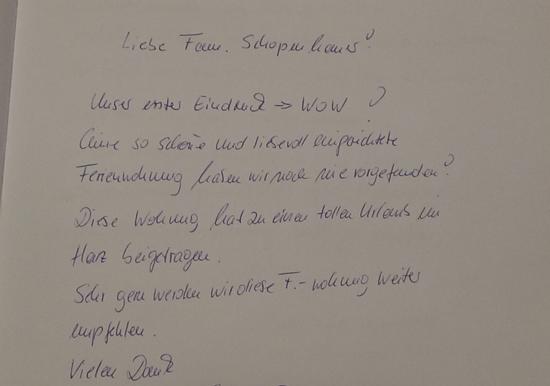 Liebe Fam. Schopenhauer!
Unser erster Eindruck → WOW!
Eine so schöne und liebevoll eingerichtete
Ferienwohnung haben wir noch nie vorgefunden!
Diese Wohnung hat zu einen tollen Urlaub im
Harz beigetragen.
Sehr gern werden wir diese F.-wohnung weiter
empfehlen.
Vielen Dank